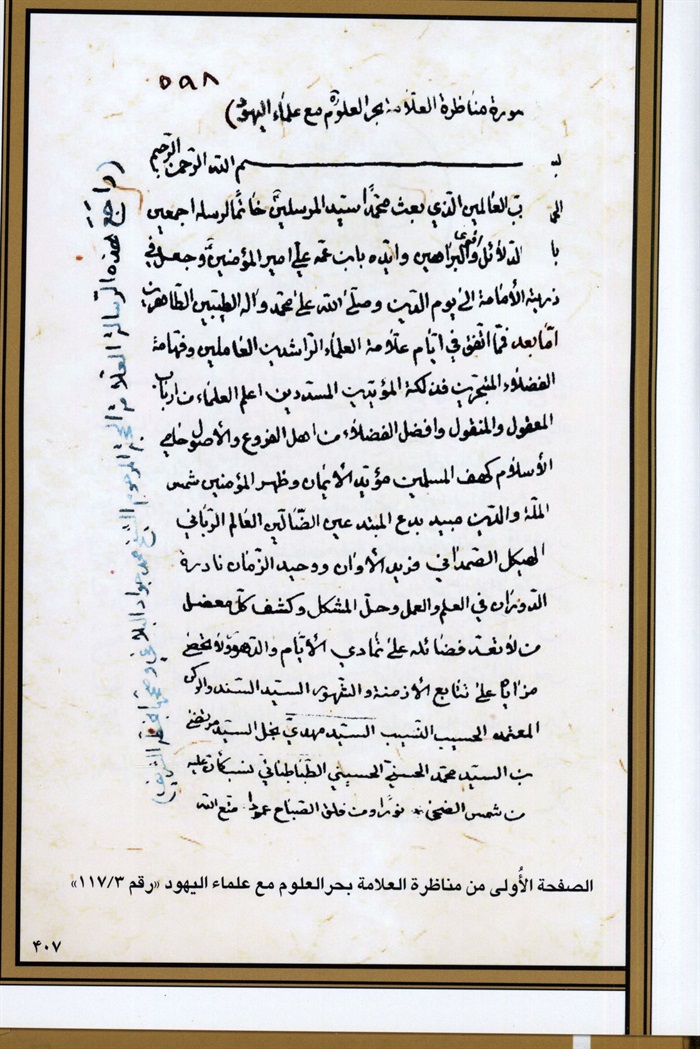 ٥٩٨
صورة مناظرة العلامة بحر العلوم مع علماء اليهود)
بسم الله الرحمن الرحيم
ب العالمين الذي بعث محمداً سيد المرسلين خاتماً لرسله اجمعين
الدلائل و البراهين وايده بابن عمه علي امير المؤمنين وجعل في
ذريته الأمامة الى يوم الدين وصلى الله على محمد وآله الطيبين الطاهرين
اما بعد فما اتفق في ايام علامة العلماء الراشدين العاملين وفهامة
الفضلاء المتبحرين فذلكة المؤيدين المسددين اعلم العلماء من ارباب
المعقول والمنقول وافضل الفضلاء من اهل الفروع والأصول حامي
الأسلام كهف المسلمين مؤيد الأيمان وظهر المؤمنين شمس
الملة والدين مبيد بدع المبتدعين الضالين العالم الرباني
الهيكل الصمداني فريد الأوان ووحيد الزمان نادرة
الدوران في العلم والعمل وحل المشكل وكشف كل معضل
من لا تعد فضائله على تمادي الأيام والدهور ولا تحصى
مزاياه على تتابع الأزمنة والشهور السيد السند والركن
المعتمد الحسيب النسيب السيد مهدي نجل السيد مرتضى
بن السيد محمد الحسني الحسيني الطباطبائي نسب كأن عليه
من شمس الضحى * نوراً ومن فلق الصباح عمودا متع الله
(راجع هذه الرسالة العلامة الحجة المرحوم الشيخ محمد جواد البلاغي وصححها بخطه الشريف)
الصفحة الأُولى من مناظرة العلامة بحرالعلوم مع علماء اليهود «رقم ١١٧/٣»
۴۰۷